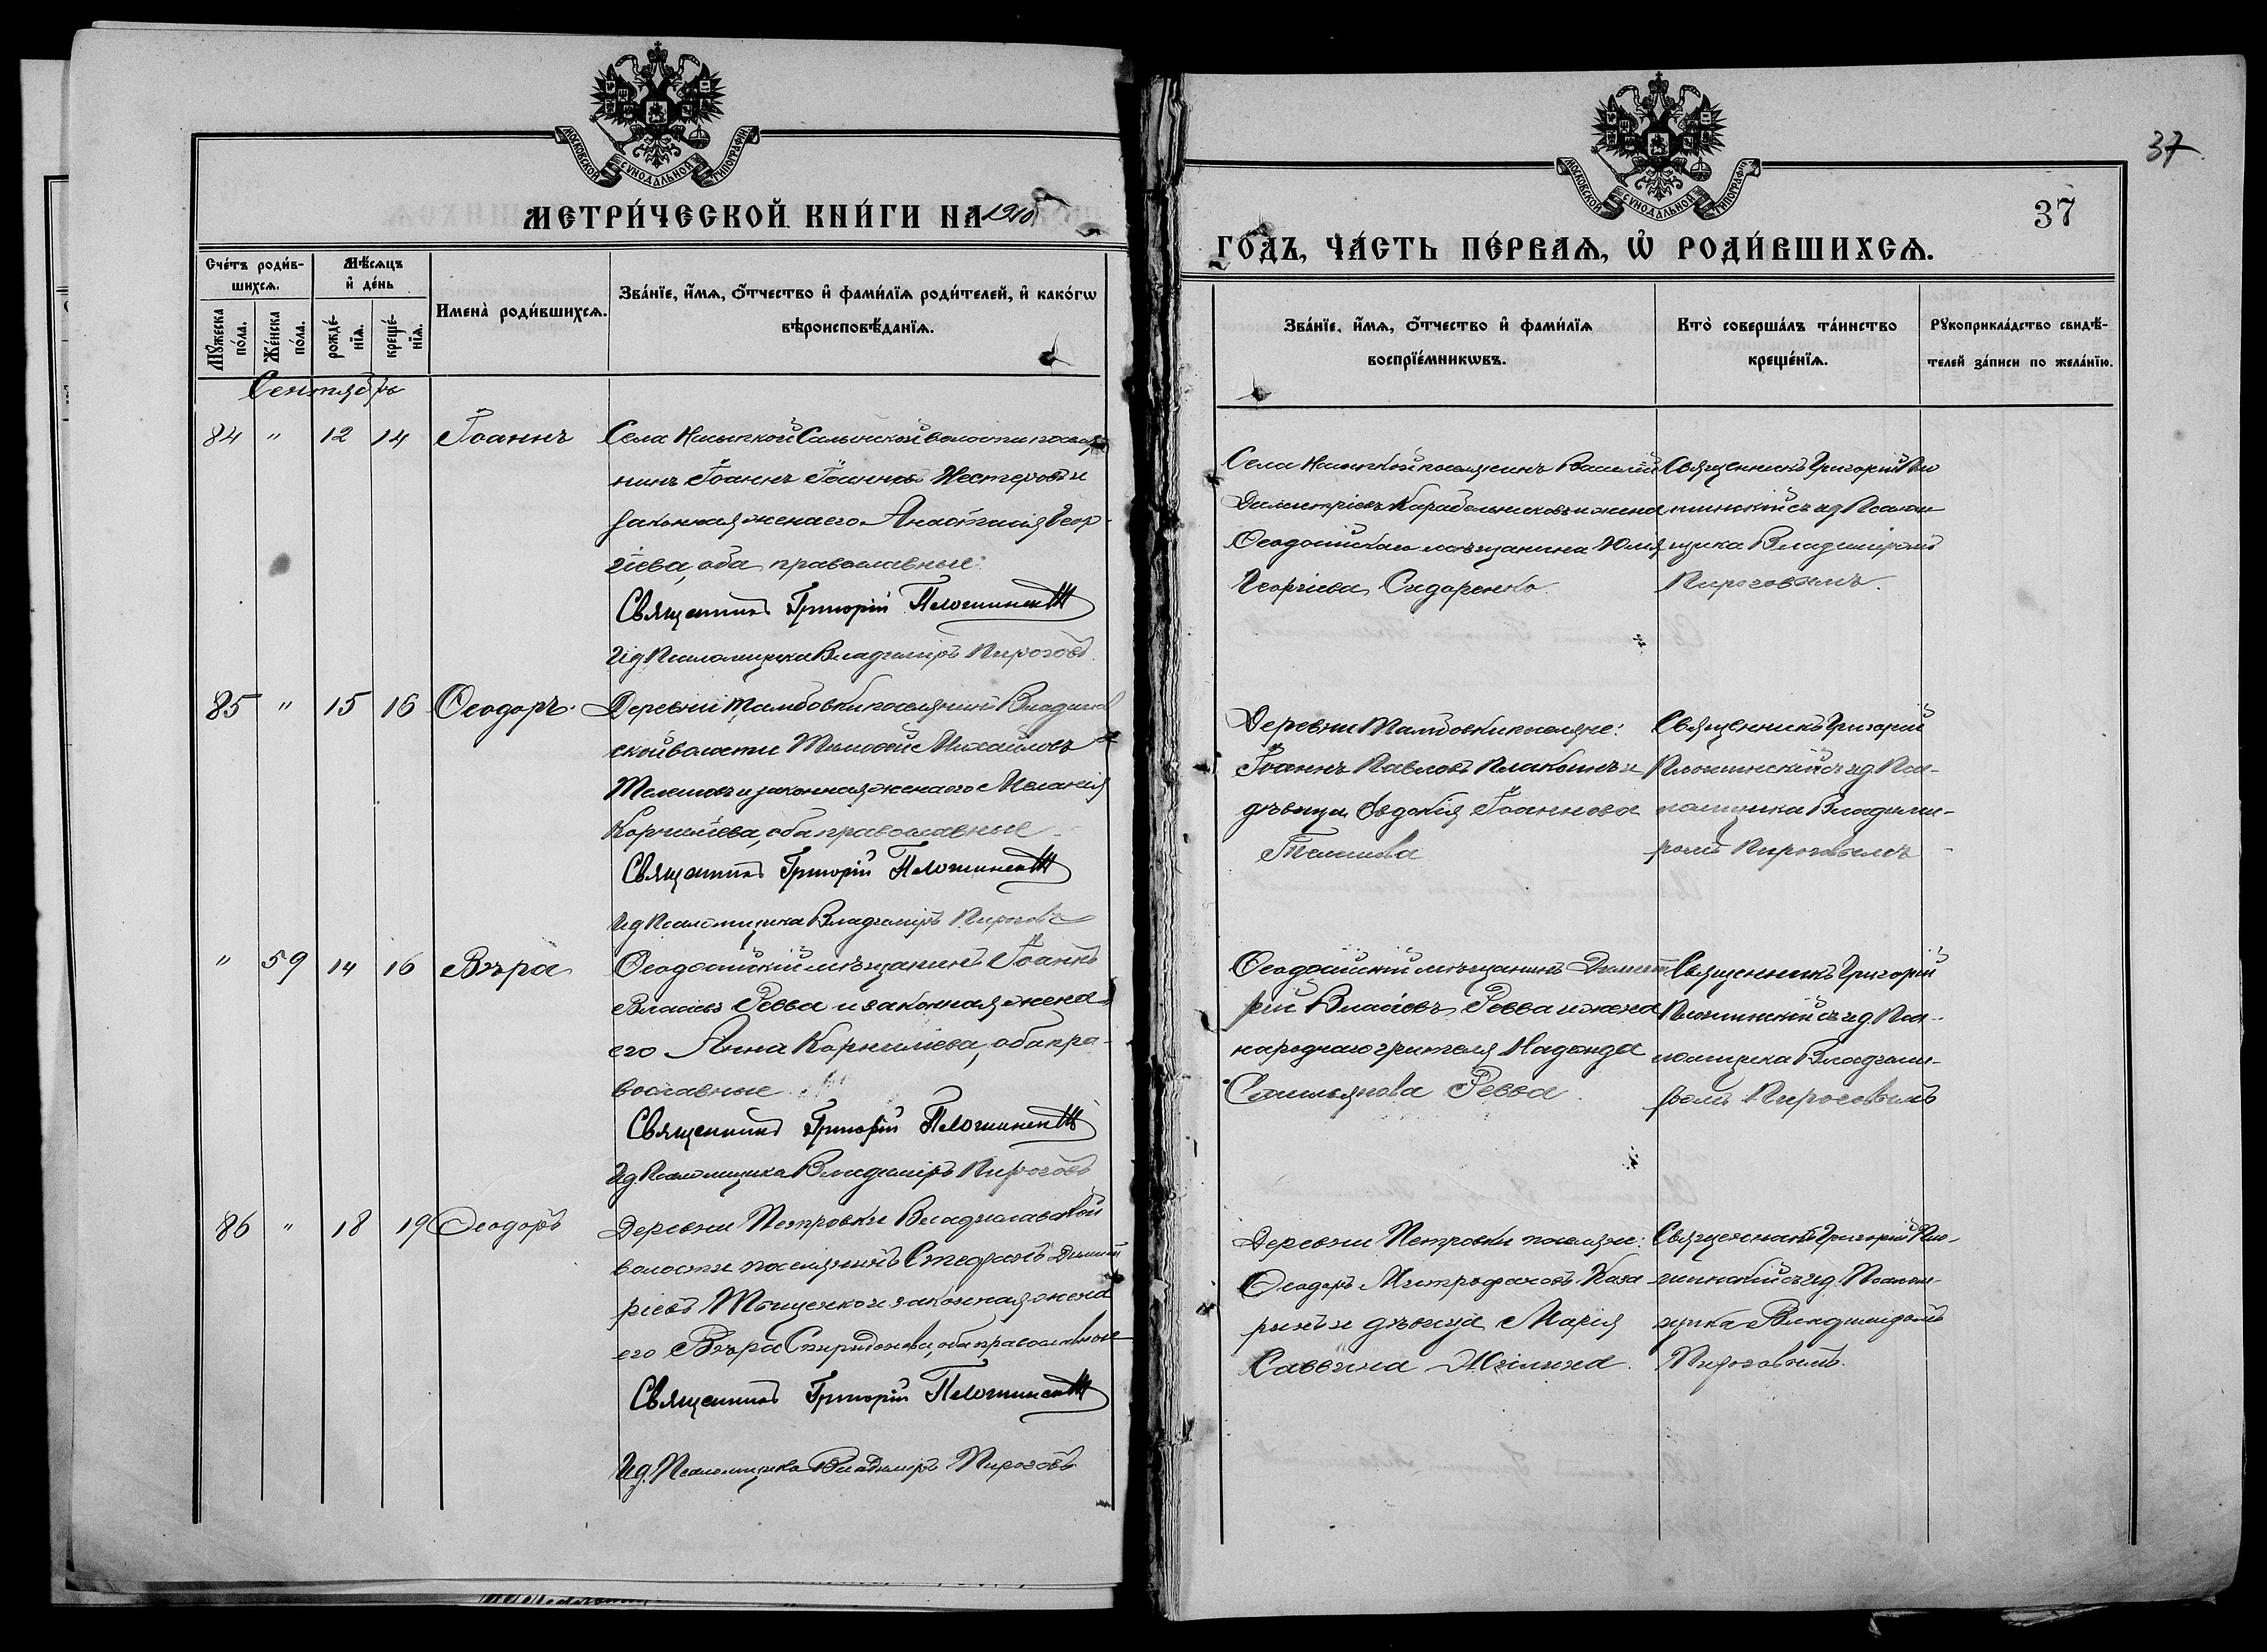 МОСКОВСКОЙ СѴНОДАЛЬНОЙ ТИПОГРАФІИ
МЕТРИ́ЧЕСКОЙ КНИ́ГИ НА 1910
Сче́тъ роди́в-
шихсѧ.
Мѣ́сѧцъ
и҆ де́нь
Имена̀ роди́вшихсѧ.
Зва́нїе, и҆́мѧ, о҆́тчество и҆ фами́лїѧ роди́телей, и҆ како́гѡ
вѣроисповѣ́данїѧ.
Мꙋ́жеска по́ла.
Же́нска по́ла.
рожде́-
нїѧ.
креще́-
нїѧ.
Сентябрь
84 " 12 14 Іоаннъ
Села Насыпкой Салынской волости поселя
нинъ Іоаннъ Іоанновъ Нестеровъ и
законная жена его Анастасія Геор-
гіева, оба православные.
Священникъ Григорій
И д Псаломщика Владиміръ Пироговъ
85 " 15 16 Ѳеодоръ.
Деревни Тамбовки поселянинъ Владислав
ской волости Михайловъ
и законная жена его Меланія
Корнилiева, оба православные
Священникъ Григорій
И д Псаломщика Владиміръ Пироговъ
" 59 14 16 Вѣра
Ѳеодосійскій мѣщанинъ Іоаннъ
Власіевъ Ревва и законная жена
его Анна Корниліева, оба пра-
вославные
Священникъ Григорій
И д. Псаломщика Владиміръ Пироговъ
86 " 18 19 Ѳеодоръ
Деревни Петровки Владиславской
волости поселянинъ Стефанъ Димит
ріевъ Тыщенко и законная жена
его Вѣра Спиридонова, оба православные
Священникъ Григорій
И д. Псаломщика Владиміръ Пироговъ
37
МОСКОВСКОЙ СѴНОДАЛЬНОЙ ТИПОГРАФІИ
37
ГО́ДЪ, ЧА́СТЬ ПЕ́РВАѦ, Ѡ҆ РОДИ́ВШИХСѦ.
Зва́нїе, и҆́мѧ, о҆́тчество и҆ фами́лїѧ
воспрїе́мникѡвъ.
Кто̀ соверша́лъ та́инство
креще́нїѧ.
Рꙋкоприкла́дство свидѣ́-
телей за́писи по жела́нїю.
Села Насыпкой поселянинъ Василій
Димитріевъ Карабельниковъ и жена
Ѳеодосійскаго мѣщанина Юлія
Георгіева Сидоренко.
Священникъ Григорій
съ и д Псалом
щика Владиміромъ
Пироговымъ.
Деревни Тамбовки поселяне:
Іоаннъ Павловъ Плаксинъ и
дѣвица Евдокія Іоаннова
Священникъ Григорій
съ и д. Пса-
ломщика Владими-
ромъ Пироговымъ
Ѳеодосійскій мѣщанинъ Димит
рій Власіевъ Ревва и жена
народнаго учителя Надежда
Ревва
Священникъ Григорій
съ и д. Пса-
ломщика Владими-
ромъ Пироговымъ
Деревни Петровки поселяне:
Ѳеодоръ Митрофановъ Каза
ринъ и дѣвица Марія
Саввина
Священникъ Григорій
съ и д. Псалом-
щика Владиміромъ
Пироговымъ.